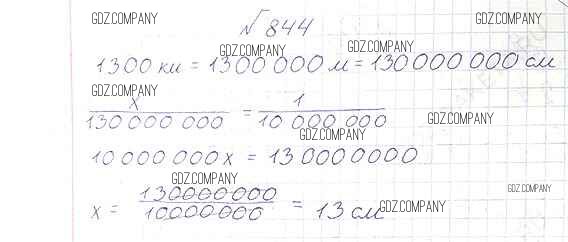 GDZ.COMPANY GDZ.COMPANY
№ 844
GDZ.COMPANY GDZ.COMPANY
1300 км = 1300 000 м = 130 000 000 см
GDZ.COMPANY
x / 130 000 000 = 1 / 10 000 000
GDZ.COMPANY GDZ.COMPANY
10 000 000 x = 130000000
GDZ.COMPANY GDZ.COMPANY
x = 130000000 / 10000000 = 13 см
GDZ.COMPANY